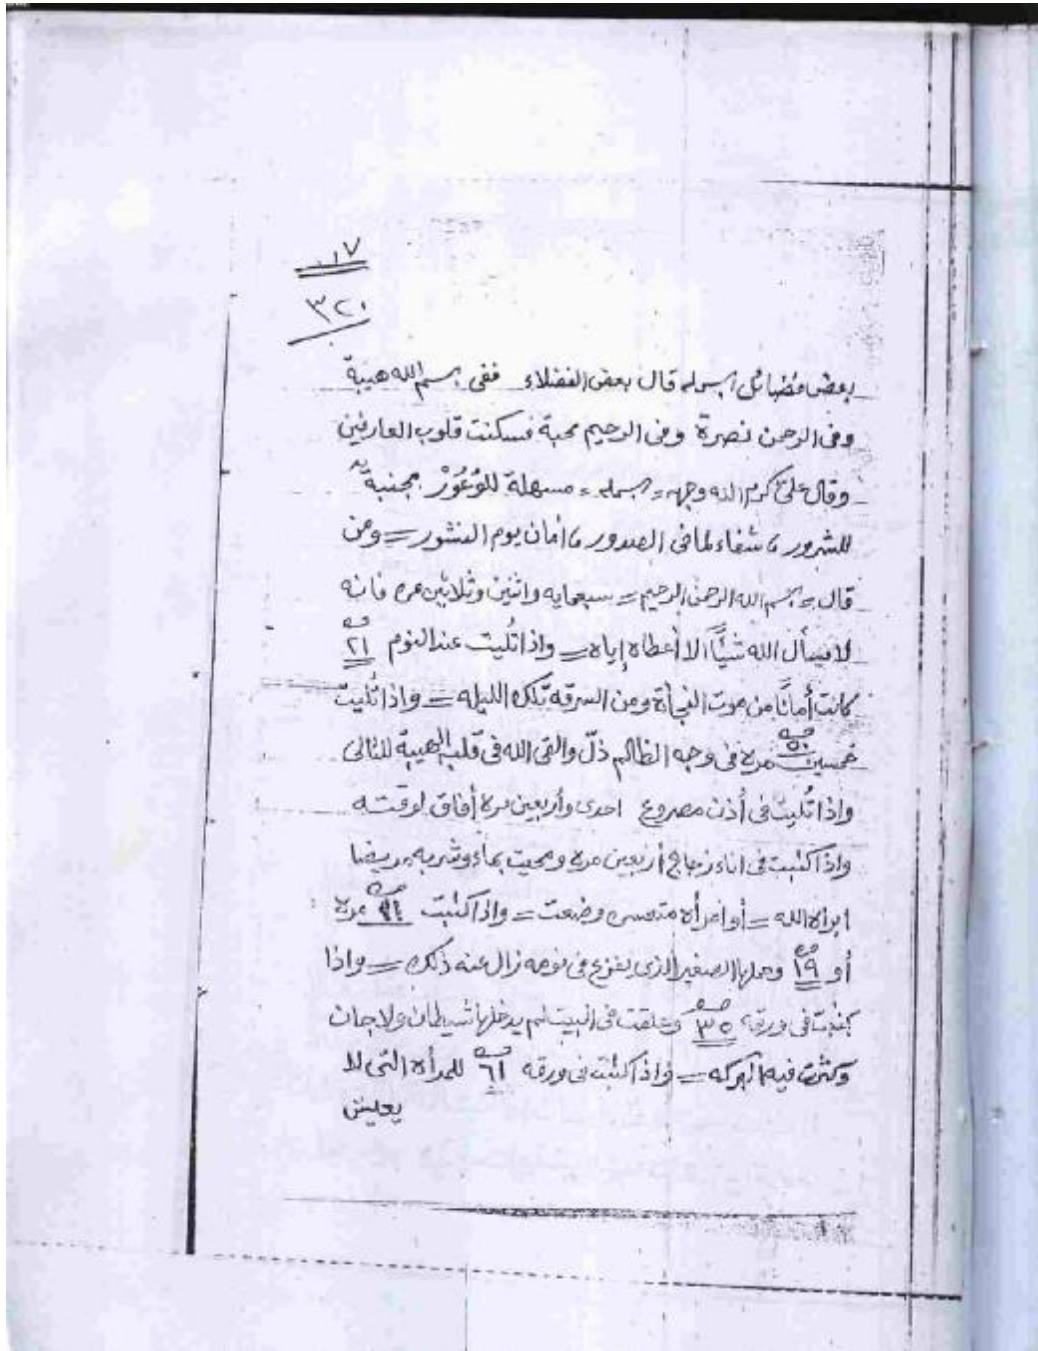 ٠١٧
٣٢٠
بعض فضائل البسملة قال بعض الفضلاء ففى بسم الله هيبة
وفى الرحمن نصرة وفى الرحيم محبة فسكنت قلوب العارفين
وقال علىّ كرم الله وجهه = البسمله = مسهلة للوُعُوْر مجنبة
للشرور ، شفاء لما فى الصدور ، أمان يوم النشور = ومن
قال = بسم الله الرحمن الرحيم = سبعمايه واثنين وثلاثين مره فانه
لا يسأل الله شيئًا الا أعطاه إياه = واذا تُليت عند النوم ٢١
كانت أمانًا من موت الفجأة ومن السرقه تلك الليله = واذا تُليت
خمسين ٥٠ مره فى وجه الظالم ذلّ والقى الله فى قلبه الهيبة للتالى
واذا تُليت فى أذن مصروع احدى وأربعين مره أفاق لوقته
واذا كتبت فى اناء زجاج أربعين مره ومحيت بماء وشربه مريضا
ابراه الله = أو امرأه متعسره وضعت = واذا كتبت مره
أو ١٩ وحملها الصغير الذى يفزع فى نومه زال عنه ذلك = واذا
كتبت فى ورقه ٣٥ وعلقت فى البيت لم يدخلها شيطان ولا جان
وكثرت فيه البركه = واذا كتبت فى ورقه ٦١ للمرأه التى لا
يعيش